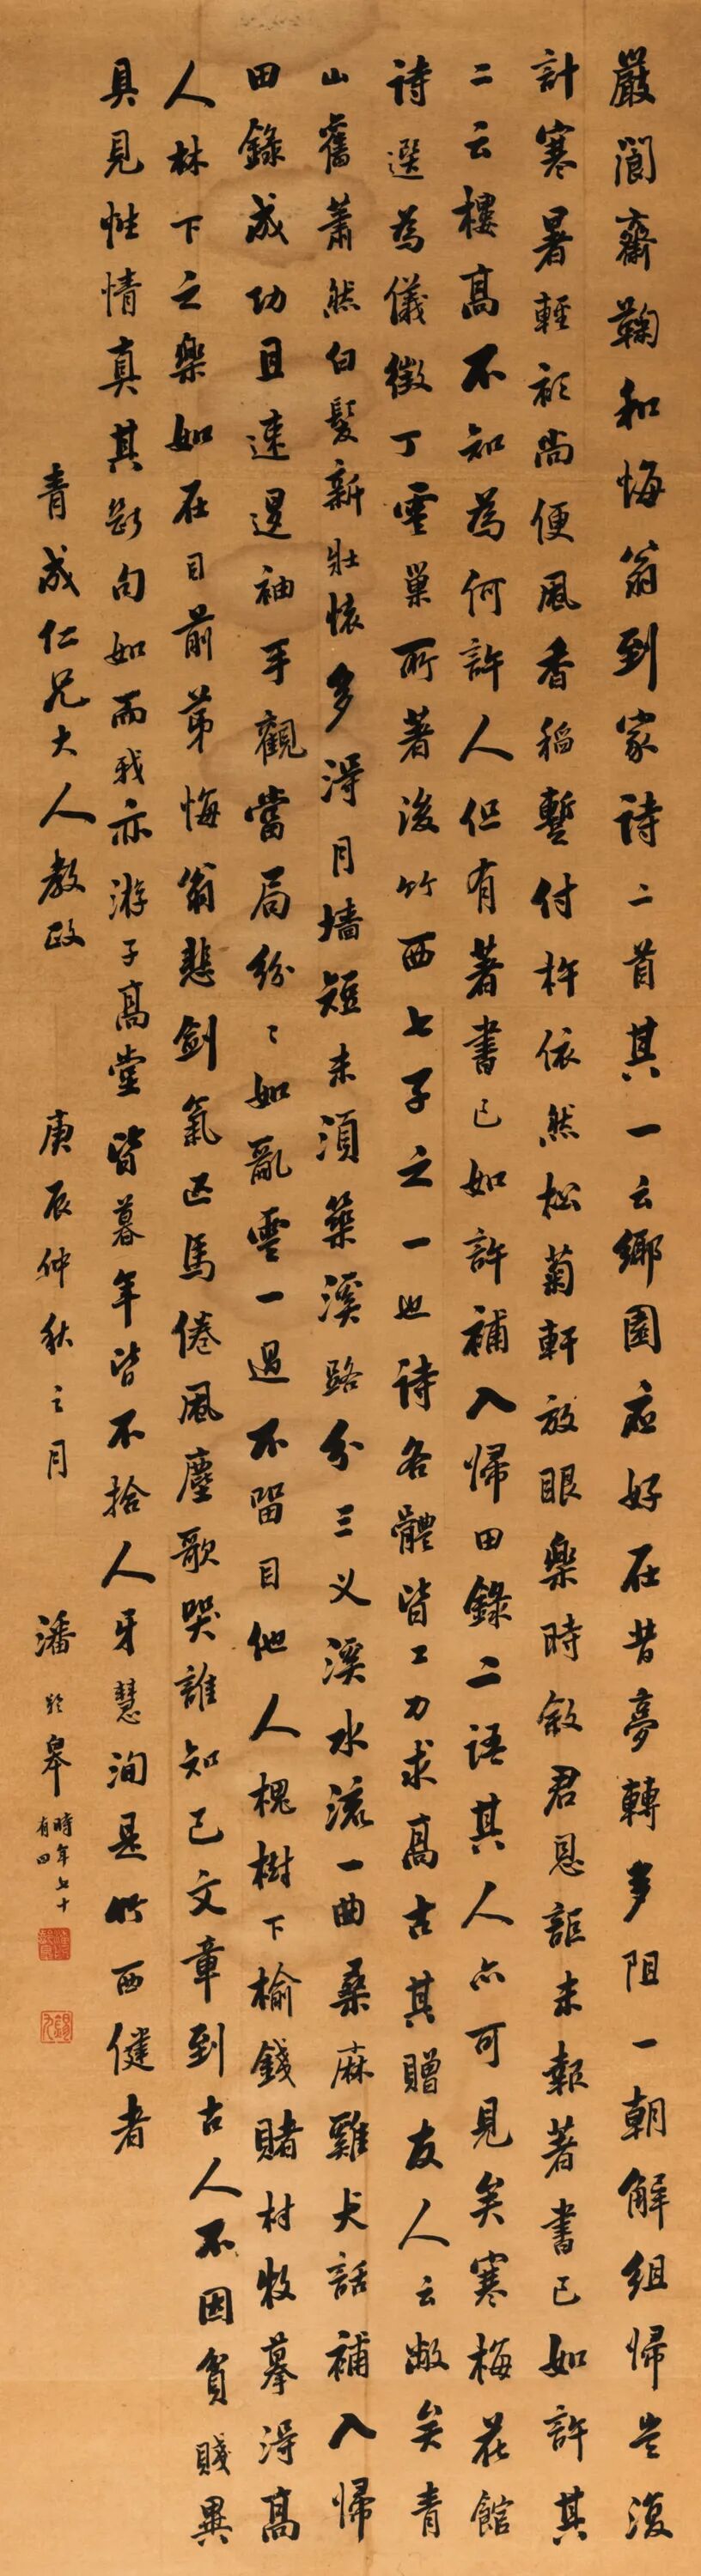 嚴誾齋鞠和悔翁到家詩二首其一云鄉園應好在昔夢轉多阻一朝解組歸豈復
計寒暑輕衫尚便風香稻暫付杵依然松菊軒放眼樂時敘君恩詎未報著書已如許其
二云樓高不知為何許人但有著書已如許補入歸田錄二語其人亦可見矣寒梅花館
詩選為儀徵丁雲巢所著後竹西七子之一也詩各體皆工力求高古其贈友人云敝矣青
山舊蕭然白髮新壯懷多得月墻短未須築溪路分三义溪水流一曲桑麻雞犬話補入歸
田錄成功且速退袖手觀當局紛紛如亂雲一過不留目他人槐樹下榆錢賭村牧摹得高
人林下之樂如在目前第悔翁悲劍氣匹馬倦風塵歌哭誰知己文章到古人不因貧賤異
具見性情真其斷句如而我亦游子高堂皆暮年皆不拾人牙慧洵是竹西健者
青成仁兄大人教政
庚辰仲秋之月
潘齡皋時年七十有四